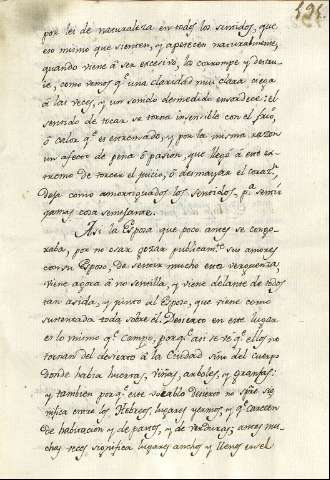 195
por lei de naturaleza en todos los sentidos, que
eso mismo que sienten, y apetecen naturalmente,
quando viene à ser excesivo, lo corrompe y destru-
ie, como vemos q.e una claridad mui clara ciega
à las veces, y un sonido desmedido ensordece: el
sentido de tocar se torna insensible con el frio,
ò calor q.e es estremado, y por la misma razon
un afecto de pena ò pasion, que llegò à este ex-
tremo de torcer el juicio, ò desmayar el corazon
deja como amortiguados los sentidos p.a sentir
cosa semejante.
Asi la Esposa que poco antes se congo-
xaba, por no osar gozar publicam.te sus amores
con su Esposo, de sentir mucho esta verguenza,
viene agora à no sentilla, y viene delante de todos
tan asida, y junto al Esposo, que viene como
sustentada toda sobre él. Desierto en este lugar
es lo mismo q.e campo, porq.e ellos no
tornan del desierto à la Ciudad sino del campo
donde habia huertas, viñas, arboles, y granjas:
y tambien porq.e este vocablo desierto no spre sig-
nifica entre los Hebreos, lugares yermos, y q.e carecen
de habitacion y de pastos, y de verduras; antes mu-
chas veces significa lugares anchos y llenos en el